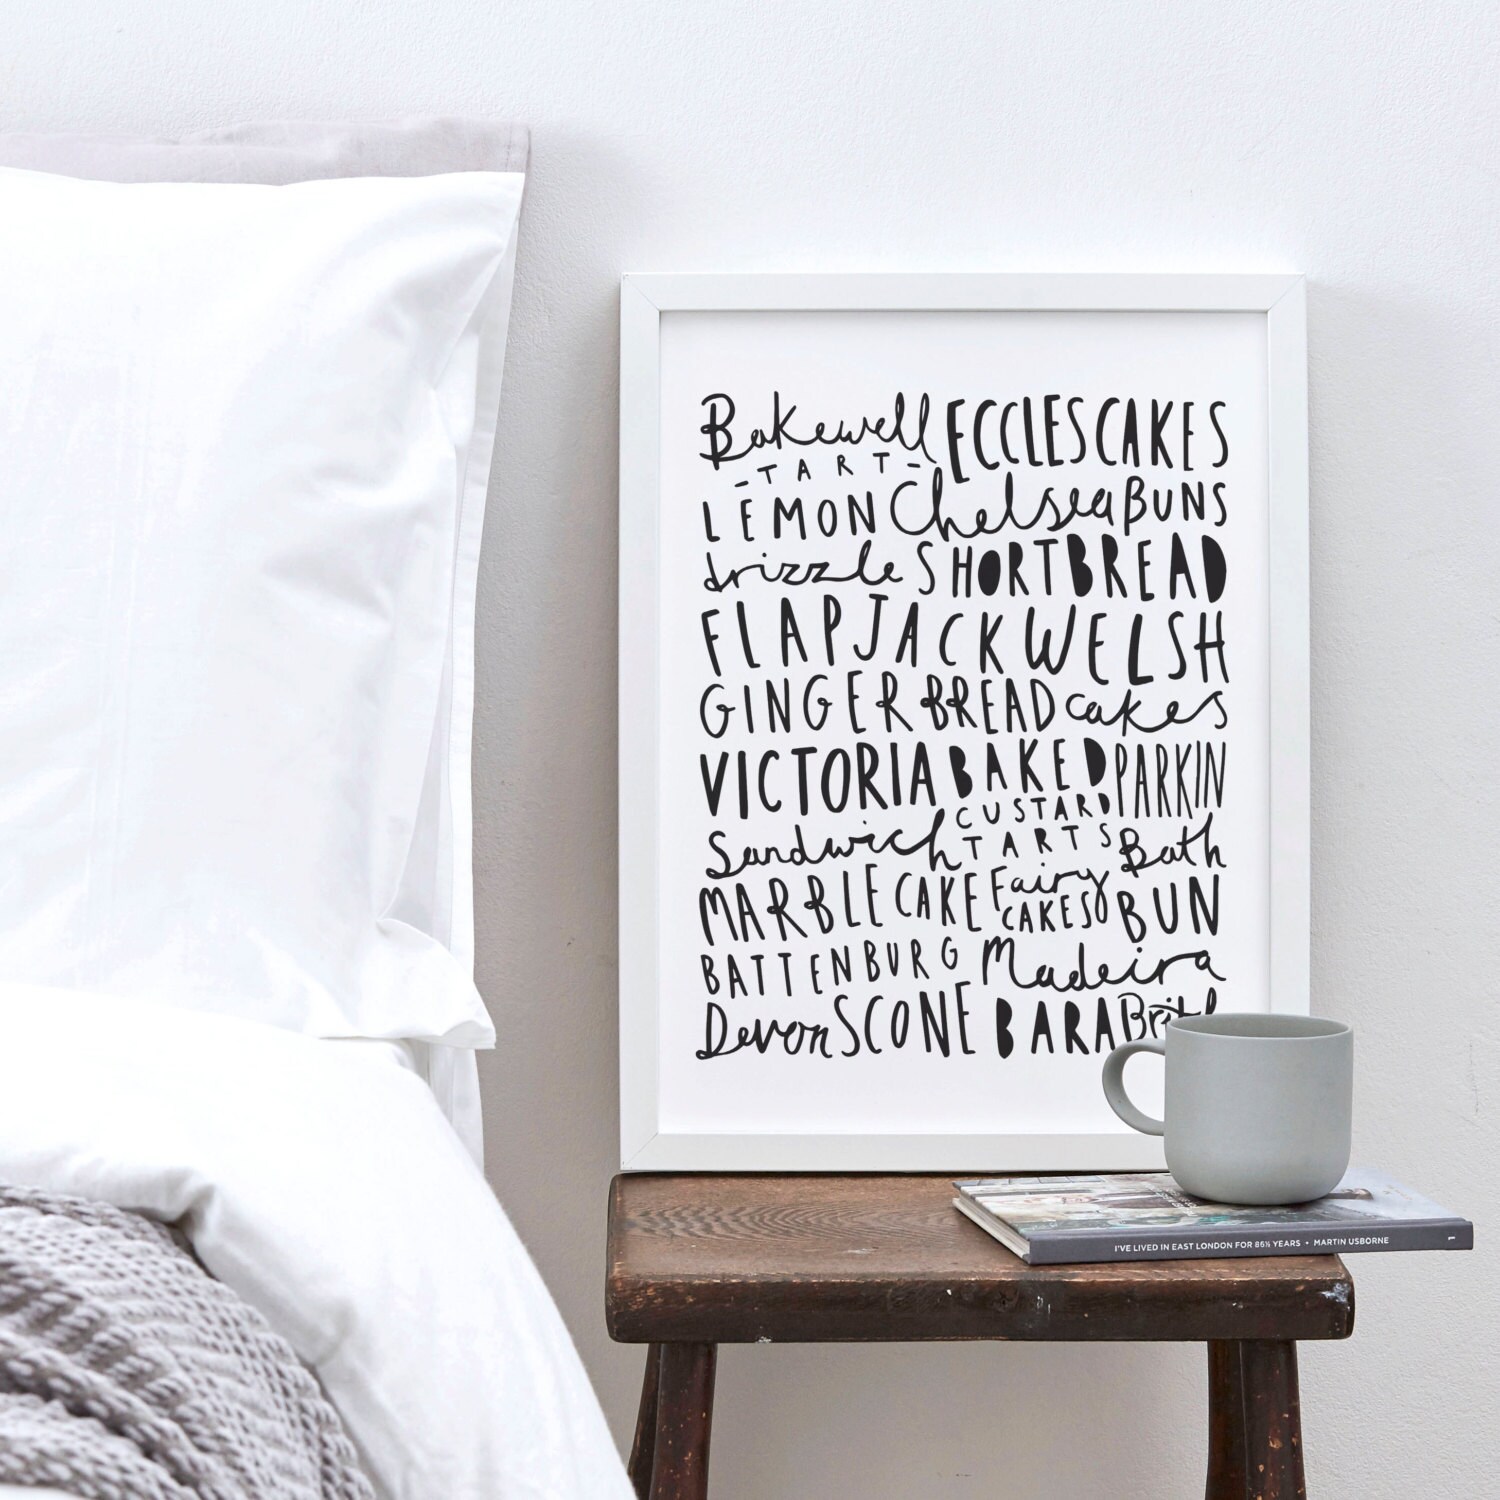 Bakewell ECCLES CAKES
- TART -
LEMON Chelsea BUNS
drizzle SHORTBREAD
FLAPJACK WELSH
GINGERBREAD cakes
VICTORIA BAKED PARKIN
CUSTARD
Sandwich TARTS Bath
MARBLE CAKE Fairy
CAKES BUN
BATTENBURG Madeira
Devon SCONE BARA
I'VE LIVED IN EAST LONDON FOR 86½ YEARS • MARTIN USBORNE 1